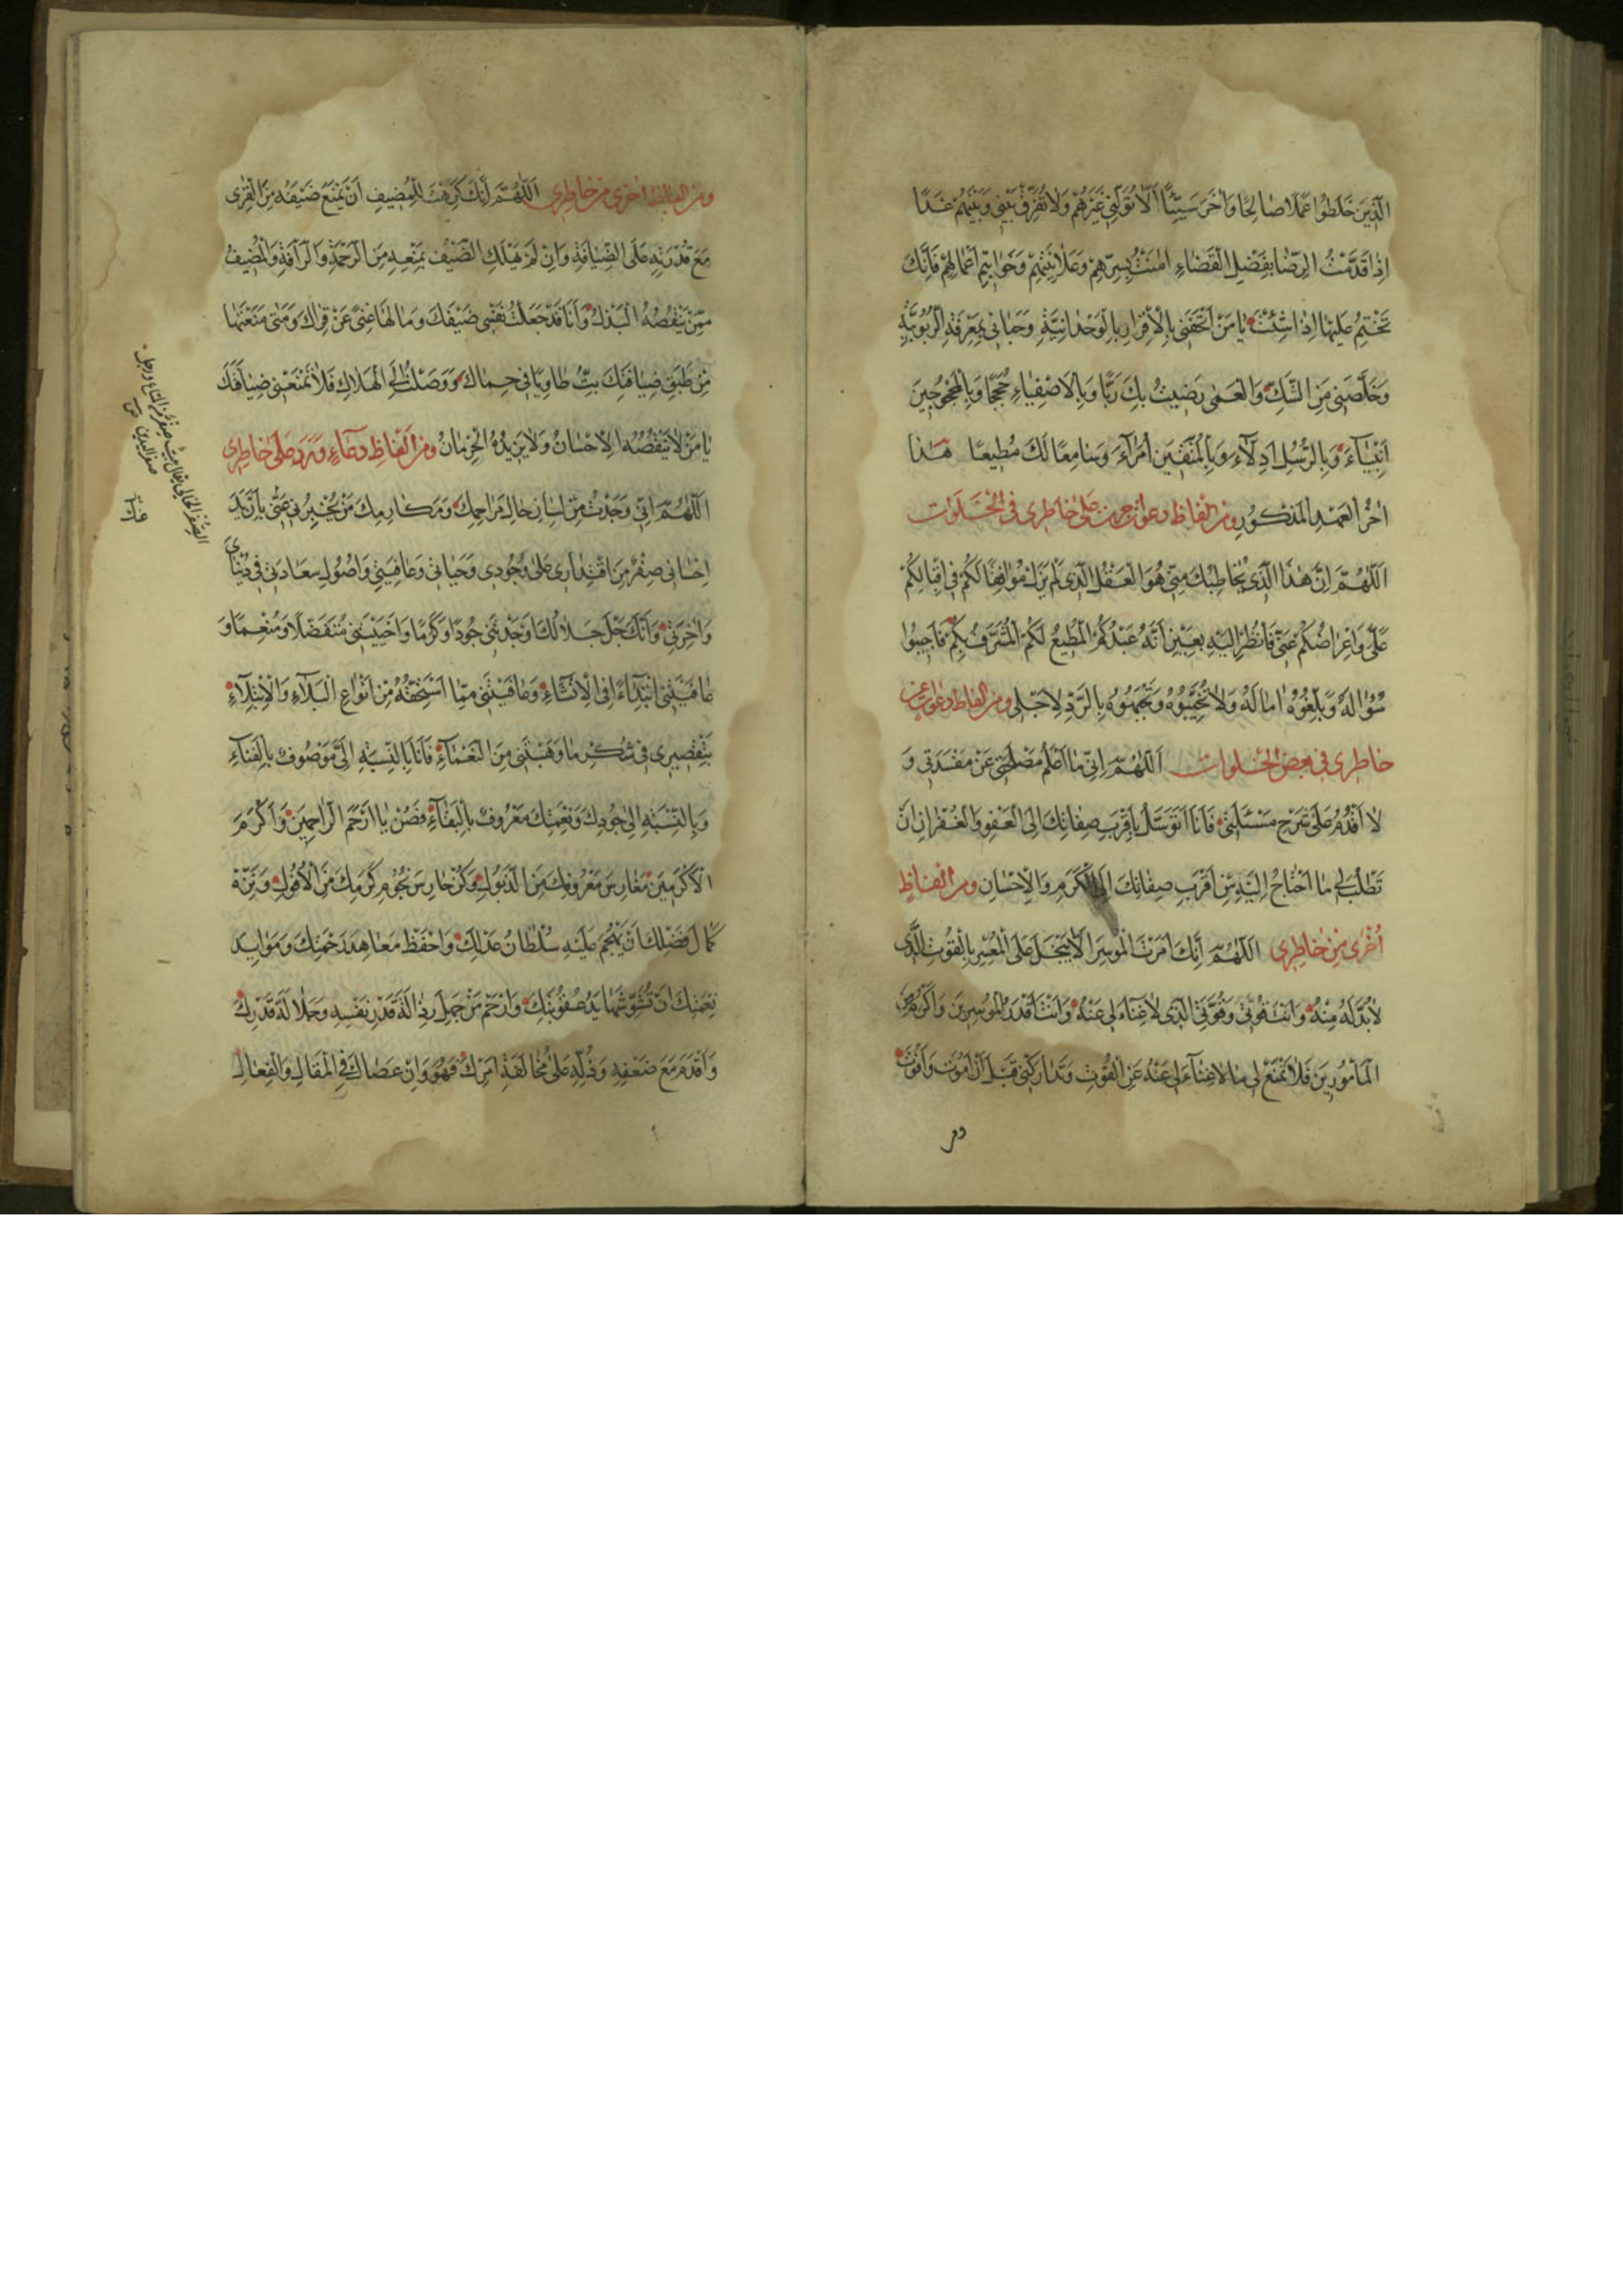 الَّذِينَ خَلَطُوا عَمَلًا صَالِحًا وَآخَرَ سَيِّئًا أَلَّا تُوَلِّيَنِي غَيْرَهُمْ وَلَا تُفَرِّقْ بَيْنِي وَبَيْنَهُمْ غَدًا
إِذَا قَدَّمْتُ الرِّضَا بِفَضْلِ الْقَضَاءِ آمَنْتُ بِسِرِّهِمْ وَعَلَانِيَتِهِمْ وَخَوَاتِيمِ أَعْمَالِهِمْ فَإِنَّكَ
تَخْتِمُ عَلَيْهَا إِذَا شِئْتَ يَا مَنْ أَتْحَفَنِي بِالْإِقْرَارِ بِالْوَحْدَانِيَّةِ وَحَبَانِي بِمَعْرِفَةِ الرُّبُوبِيَّةِ
وَخَلَّصَنِي مِنَ الشَّكِّ وَالْعَمَى رَضِيتُ بِكَ رَبًّا وَبِالْأَصْفِيَاءِ حُجَجًا وَبِالْمَحْجُوبِينَ
أَنْبِيَاءَ وَبِالرُّسُلِ أَدِلَّاءَ وَبِالْمُتَّقِينَ أُمَرَاءَ وَسَامِعًا لَكَ مُطِيعًا هَذَا
آخِرُ الْعَهْدِ الْمَذْكُورِ ومن الفاظ دعوات جرت على خاطري في الخلوات
اللَّهُمَّ إِنَّ هَذَا الَّذِي يُخَاطِبُكَ مِنِّي هُوَ الْعَقْلُ الَّذِي لَمْ يَزَلْ مُوَافِقًا لَكُمْ فِي إِقْبَالِكُمْ
عَلَيَّ وَإِعْرَاضِكُمْ عَنِّي فَانْظُرْ إِلَيْهِ بِعَيْنِ أَنَّهُ عَبْدُكُمُ الْمُطِيعُ لَكُمُ الْمُشَرَّفُ بِكُمْ فَأَجِيبُوا
سُؤَالَهُ وَبَلِّغُوهُ آمَالَهُ وَلَا تُخَيِّبُوهُ وَتَجْبَهُوهُ بِالرَّدِّ لِأَجْلِي ومن الفاظ دعوات عن
خاطري في بعض الخلوات اللَّهُمَّ إِنِّي مَا أَعْلَمُ مَصْلَحَتِي عَنْ مَفْسَدَتِي وَ
لَا أَقْدِرُ عَلَى شَرْحِ مَسْئَلَتِي فَأَنَا أَتَوَسَّلُ بِأَقْرَبِ صِفَاتِكَ إِلَى الْعَفْوِ وَالْغُفْرَانِ أَنْ
تَطْلُبَ لِي مَا أَحْتَاجُ إِلَيْهِ مِنْ أَقْرَبِ صِفَاتِكَ إِلَى الْكَرَمِ وَالْإِحْسَانِ ومن الفاظ
أُخْرَى مِنْ خَاطِرِي اللَّهُمَّ إِنَّكَ أَمَرْتَ الْمُوسِرَ أَلَّا يَبْخَلَ عَلَى الْمُعْسِرِ بِالْقُوتِ الَّذِي
لَابُدَّ لَهُ مِنْهُ وَأَنْتَ قُوتِي وَقُوَّتِي الَّذِي لَا غِنَاءَ لِي عَنْهُ وَأَنْتَ أَقْدَرُ الْمُوسِرِينَ وَأَكْرَمُ مِنَ
الْمَأْمُورِينَ فَلَا تَمْنَعْ لِي مَا لَا غِنَاءَ لِي عَنْهُ عَنِ الْقُوتِ وَتَدَارَكْنِي قَبْلَ أَنْ أَمُوتَ وَأَفُوتَ
ومن
ومن الفاظ اخرى من خاطري اللَّهُمَّ إِنَّكَ كَرِهْتَ لِلْمُضِيفِ أَنْ يَمْنَعَ ضَيْفَهُ مِنَ الْقِرَى
مَعَ قُدْرَتِهِ عَلَى الضِّيَافَةِ وَإِنْ لَمْ يَهْلِكِ الضَّيْفُ بِمَنْعِهِ مِنَ الرَّحْمَةِ وَالرَّأْفَةِ وَالْمُضِيفُ
مِمَّنْ يَنْقُصُهُ الْبَذْلُ وَأَنَا قَدْ جَعَلْتُ نَفْسِي ضَيْفَكَ وَمَا لَهَا غِنًى عَنْ قِرَاكَ وَمَتَى مَنَعْتَهَا
مِنْ طَبَقِ ضِيَافَتِكَ بِتُّ طَاوِيًا فِي حِمَاكَ وَوَصَلْتُ إِلَى الْهَلَاكِ فَلَا تَمْنَعْنِي ضِيَافَتَكَ
يَا مَنْ لَا يَنْقُصُهُ الْإِحْسَانُ وَلَا يَزِيدُهُ الْحِرْمَانُ ومن الفاظ دعاء ورد على خاطري
اللَّهُمَّ إِنِّي وَجَدْتُ مِنْ لِسَانِ حَالِ مَرَاحِمِكَ وَمَكَارِمِكَ مَنْ يُخْبِرُنِي عَنِّي بِأَنَّ يَدَ
إِحْسَانِي صِفْرٌ مِنَ اقْتِدَارِي عَلَى وُجُودِي وَحَيَاتِي وَعَافِيَتِي وَأُصُولِ سَعَادَتِي فِي دُنْيَايَ
وَآخِرَتِي وَأَنَّكَ جَلَّ جَلَالُكَ أَوْجَدْتَنِي جُودًا وَكَرَمًا وَأَحْيَيْتَنِي مُتَفَضِّلًا وَمُنْعِمًا وَ
عَافَيْتَنِي ابْتِدَاءً فِي الْإِنْشَاءِ وَعَافَيْتَنِي مِمَّا أَسْتَحِقُّهُ مِنْ أَنْوَاعِ الْبَلَاءِ وَالْابْتِلَاءِ
بِتَقْصِيرِي فِي شُكْرِ مَا وَهَبْتَنِي مِنَ النَّعْمَاءِ فَأَنَا بِالنِّسْبَةِ إِلَيَّ مَوْصُوفٌ بِالْفَنَاءِ
وَبِالنِّسْبَةِ إِلَى جُودِكَ وَنِعْمَتِكَ مَعْرُوفٌ بِالْبَقَاءِ فَصُنْ يَا أَرْحَمَ الرَّاحِمِينَ وَأَكْرَمَ
الْأَكْرَمِينَ مَغَارِسَ مَعْرُوفِكَ مِنَ الذُّبُولِ وَكُنْ حَارِسَ نُجُومِ كَرَمِكَ مِنَ الْأُفُولِ وَنَزِّهْ
كَمَالَ فَضْلِكَ أَنْ يَهْجُمَ عَلَيْهِ سُلْطَانُ عَدْلِكَ وَاحْفَظْ مَعَاهِدَ رَحْمَتِكَ وَمَوَايِدَ
نِعْمَتِكَ أَنْ تُشَوِّشَهَا يَدُ عُقُوبَتِكَ وَارْحَمْ مَنْ جَهِلَ رَذَالَةَ قَدْرِ نَفْسِهِ وَجَلَالَةَ قَدْرِكَ
وَأَقْدَمَ مَعَ ضَعْفِهِ وَذُلِّهِ عَلَى مُخَالَفَةِ أَمْرِكَ فَهُوَ وَإِنْ عَصَاكَ فِي الْمَقَالِ وَالْفِعَالِ
الصِّفْرُ الخالي يقال بيت صِفْرٌ من المتاع ورجل
صفر اليدين